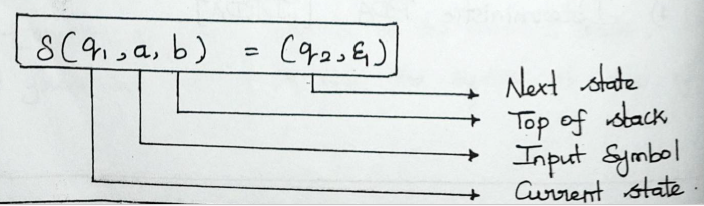 δ(q₁, a, b) = (q₂, ε₁)
Next state
Top of stack
Input Symbol
Current state.